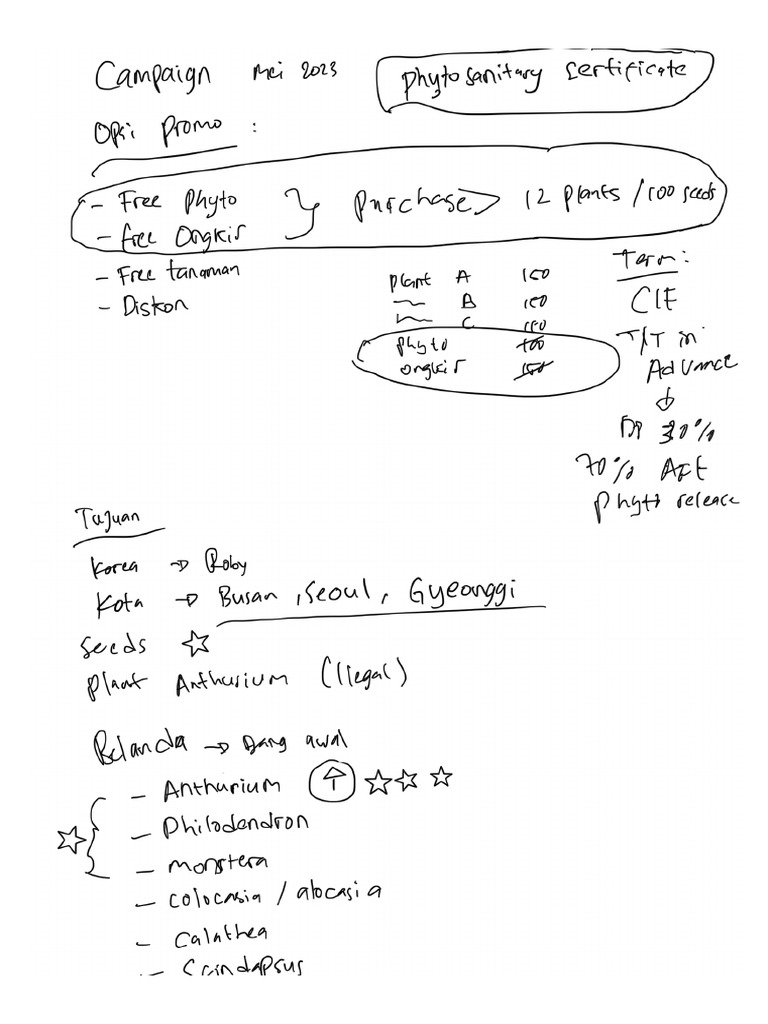 Campaign Mei 2023
Phytosanitary Sertificate
Opsi Promo :
- Free Phyto
- free Ongkir
Purchase > 12 plants / 100 seeds
- Free tanaman
- Diskon
plant A 150
B 150
C 150
phyto 100
ongkir 150
Term :
CIF
T/T in
Advance
DP 30%
70% Aft
Phyto release
Tujuan
Korea → Roby
Kota → Busan, Seoul, Gyeonggi
Seeds ☆
Plant Anthurium (Ilegal)
Belanda → Bang awal
- Anthurium ↑ ☆☆☆
☆ - Philodendron
- monstera
- colocasia / alocasia
- Calathea
- Scindapsus